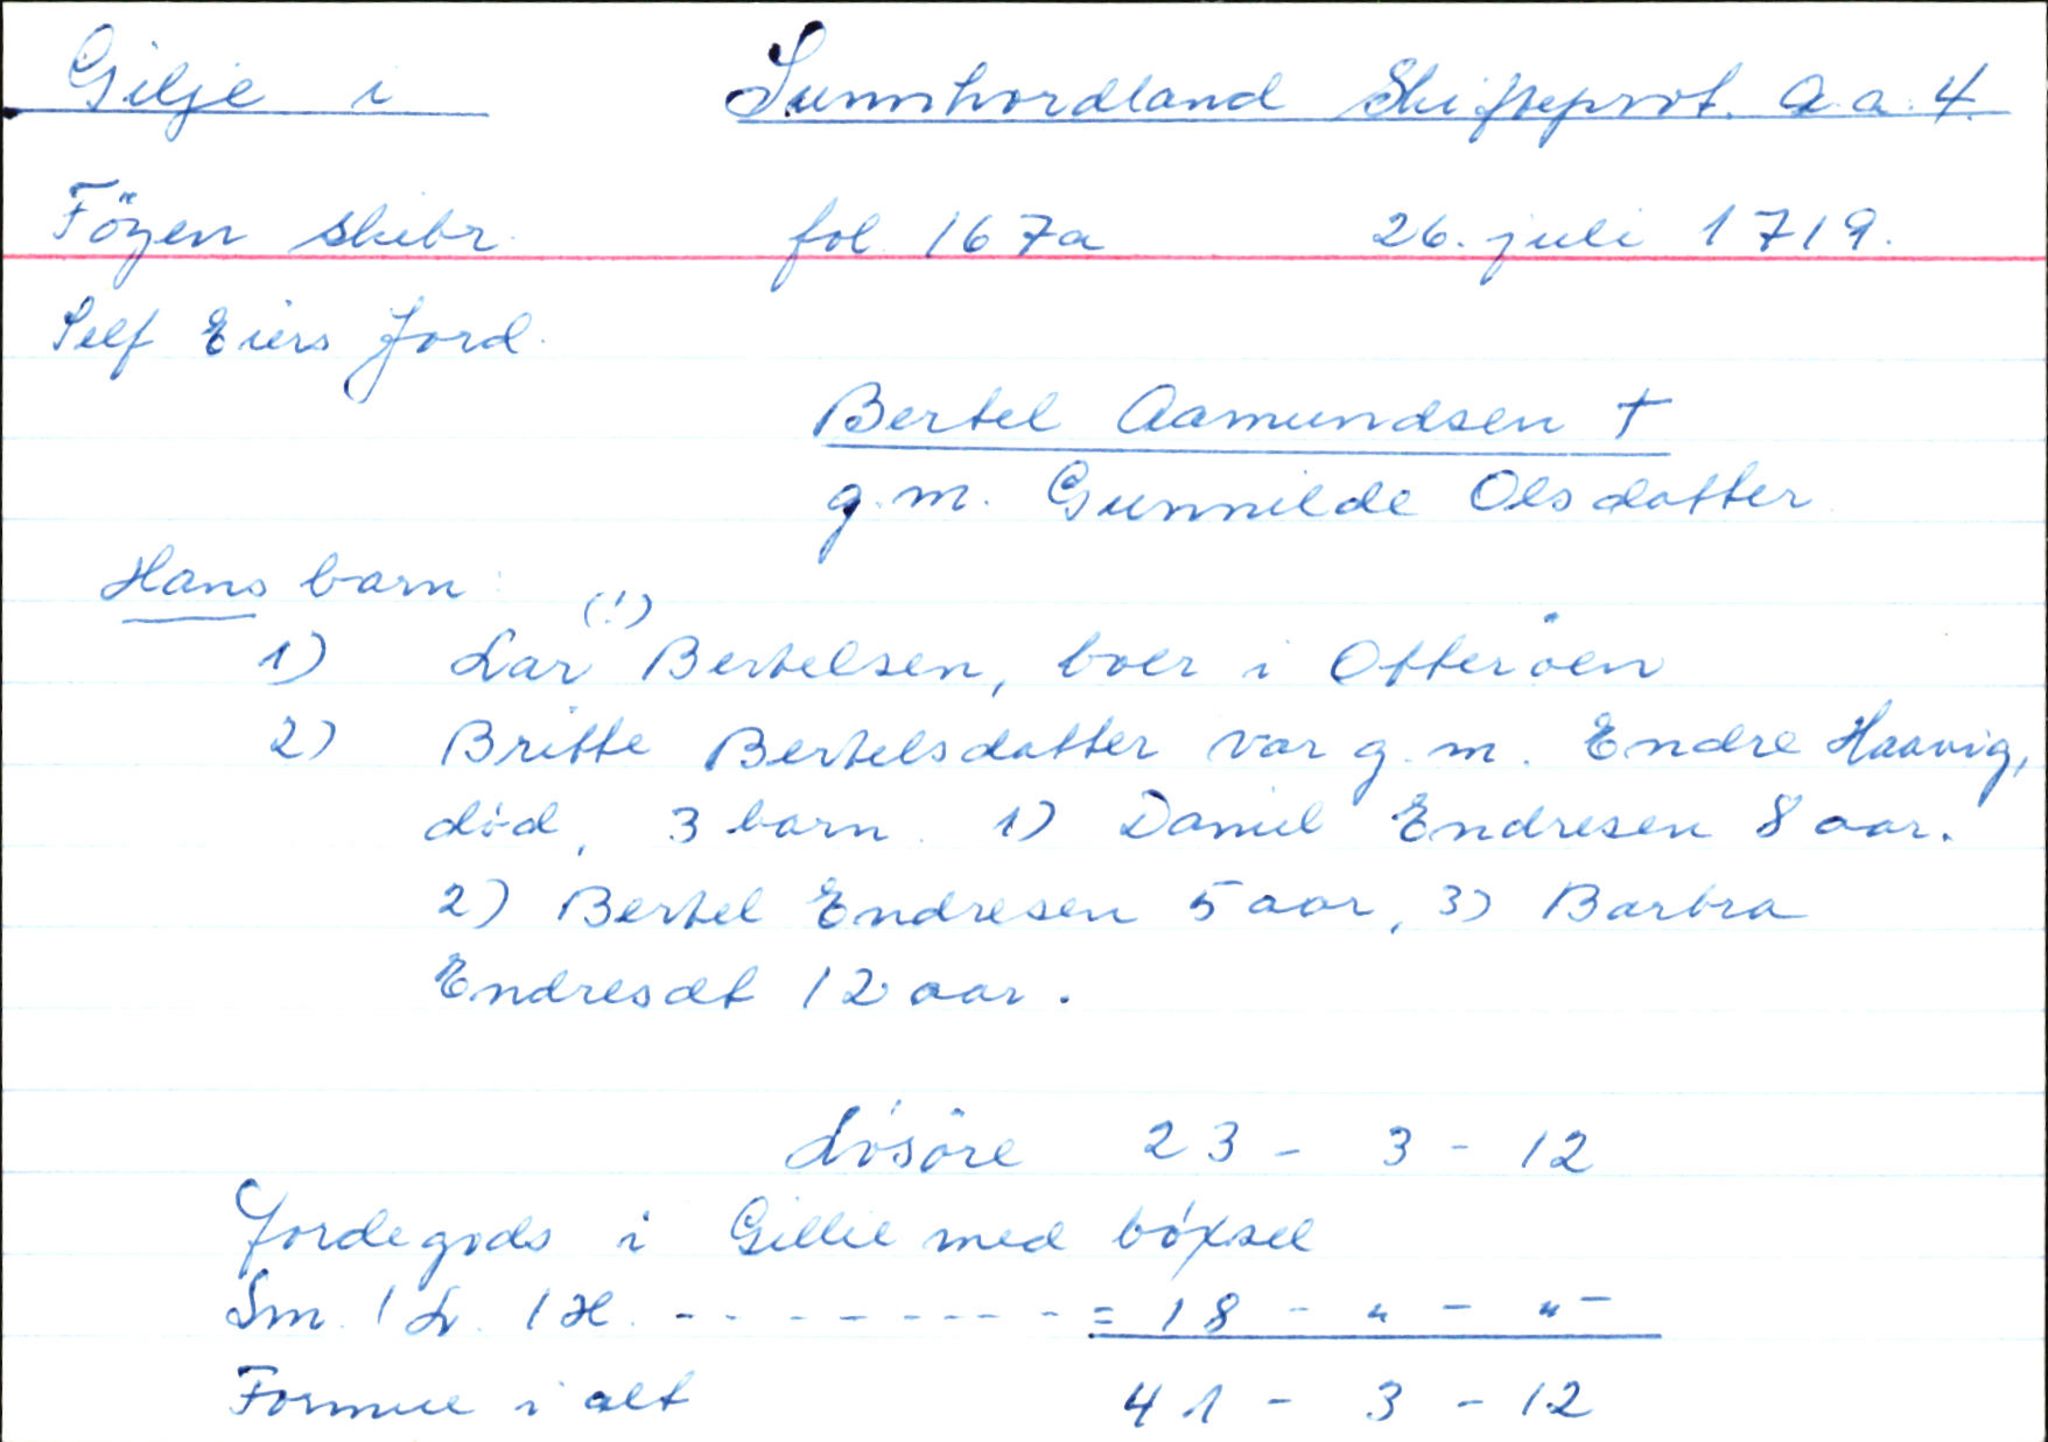 Gilje i Sunnhordland Skifteprot. A.a.4.
Föyen skibr. fol. 167a 26. juli 1719.
Self Eiers Jord.
Bertel Aamundsen †
g.m. Gunnilde Olsdatter
Hans barn:
(!)
1) Lar Bertelsen, boer i Otteröen
2) Britte Bertelsdatter var g.m. Endre Haavig,
död, 3 barn. 1) Daniel Endresen 8 aar.
2) Bertel Endresen 5 aar, 3) Barbra
Endresdt 12 aar.
Lösöre 23 - 3 - 12
Jordegods i Gillie med böxsel
Sm. 1 L. 1 H. - - - - - - - - - = 18 - " - " -
Formue i alt 41 - 3 - 12